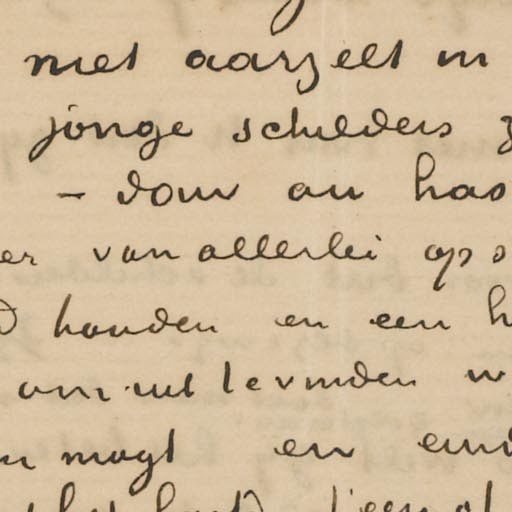 niet aarzelt in
jonge schilders
– door au has
er van allerlei op
houden en een h
om uit te vinden w
magt en eind